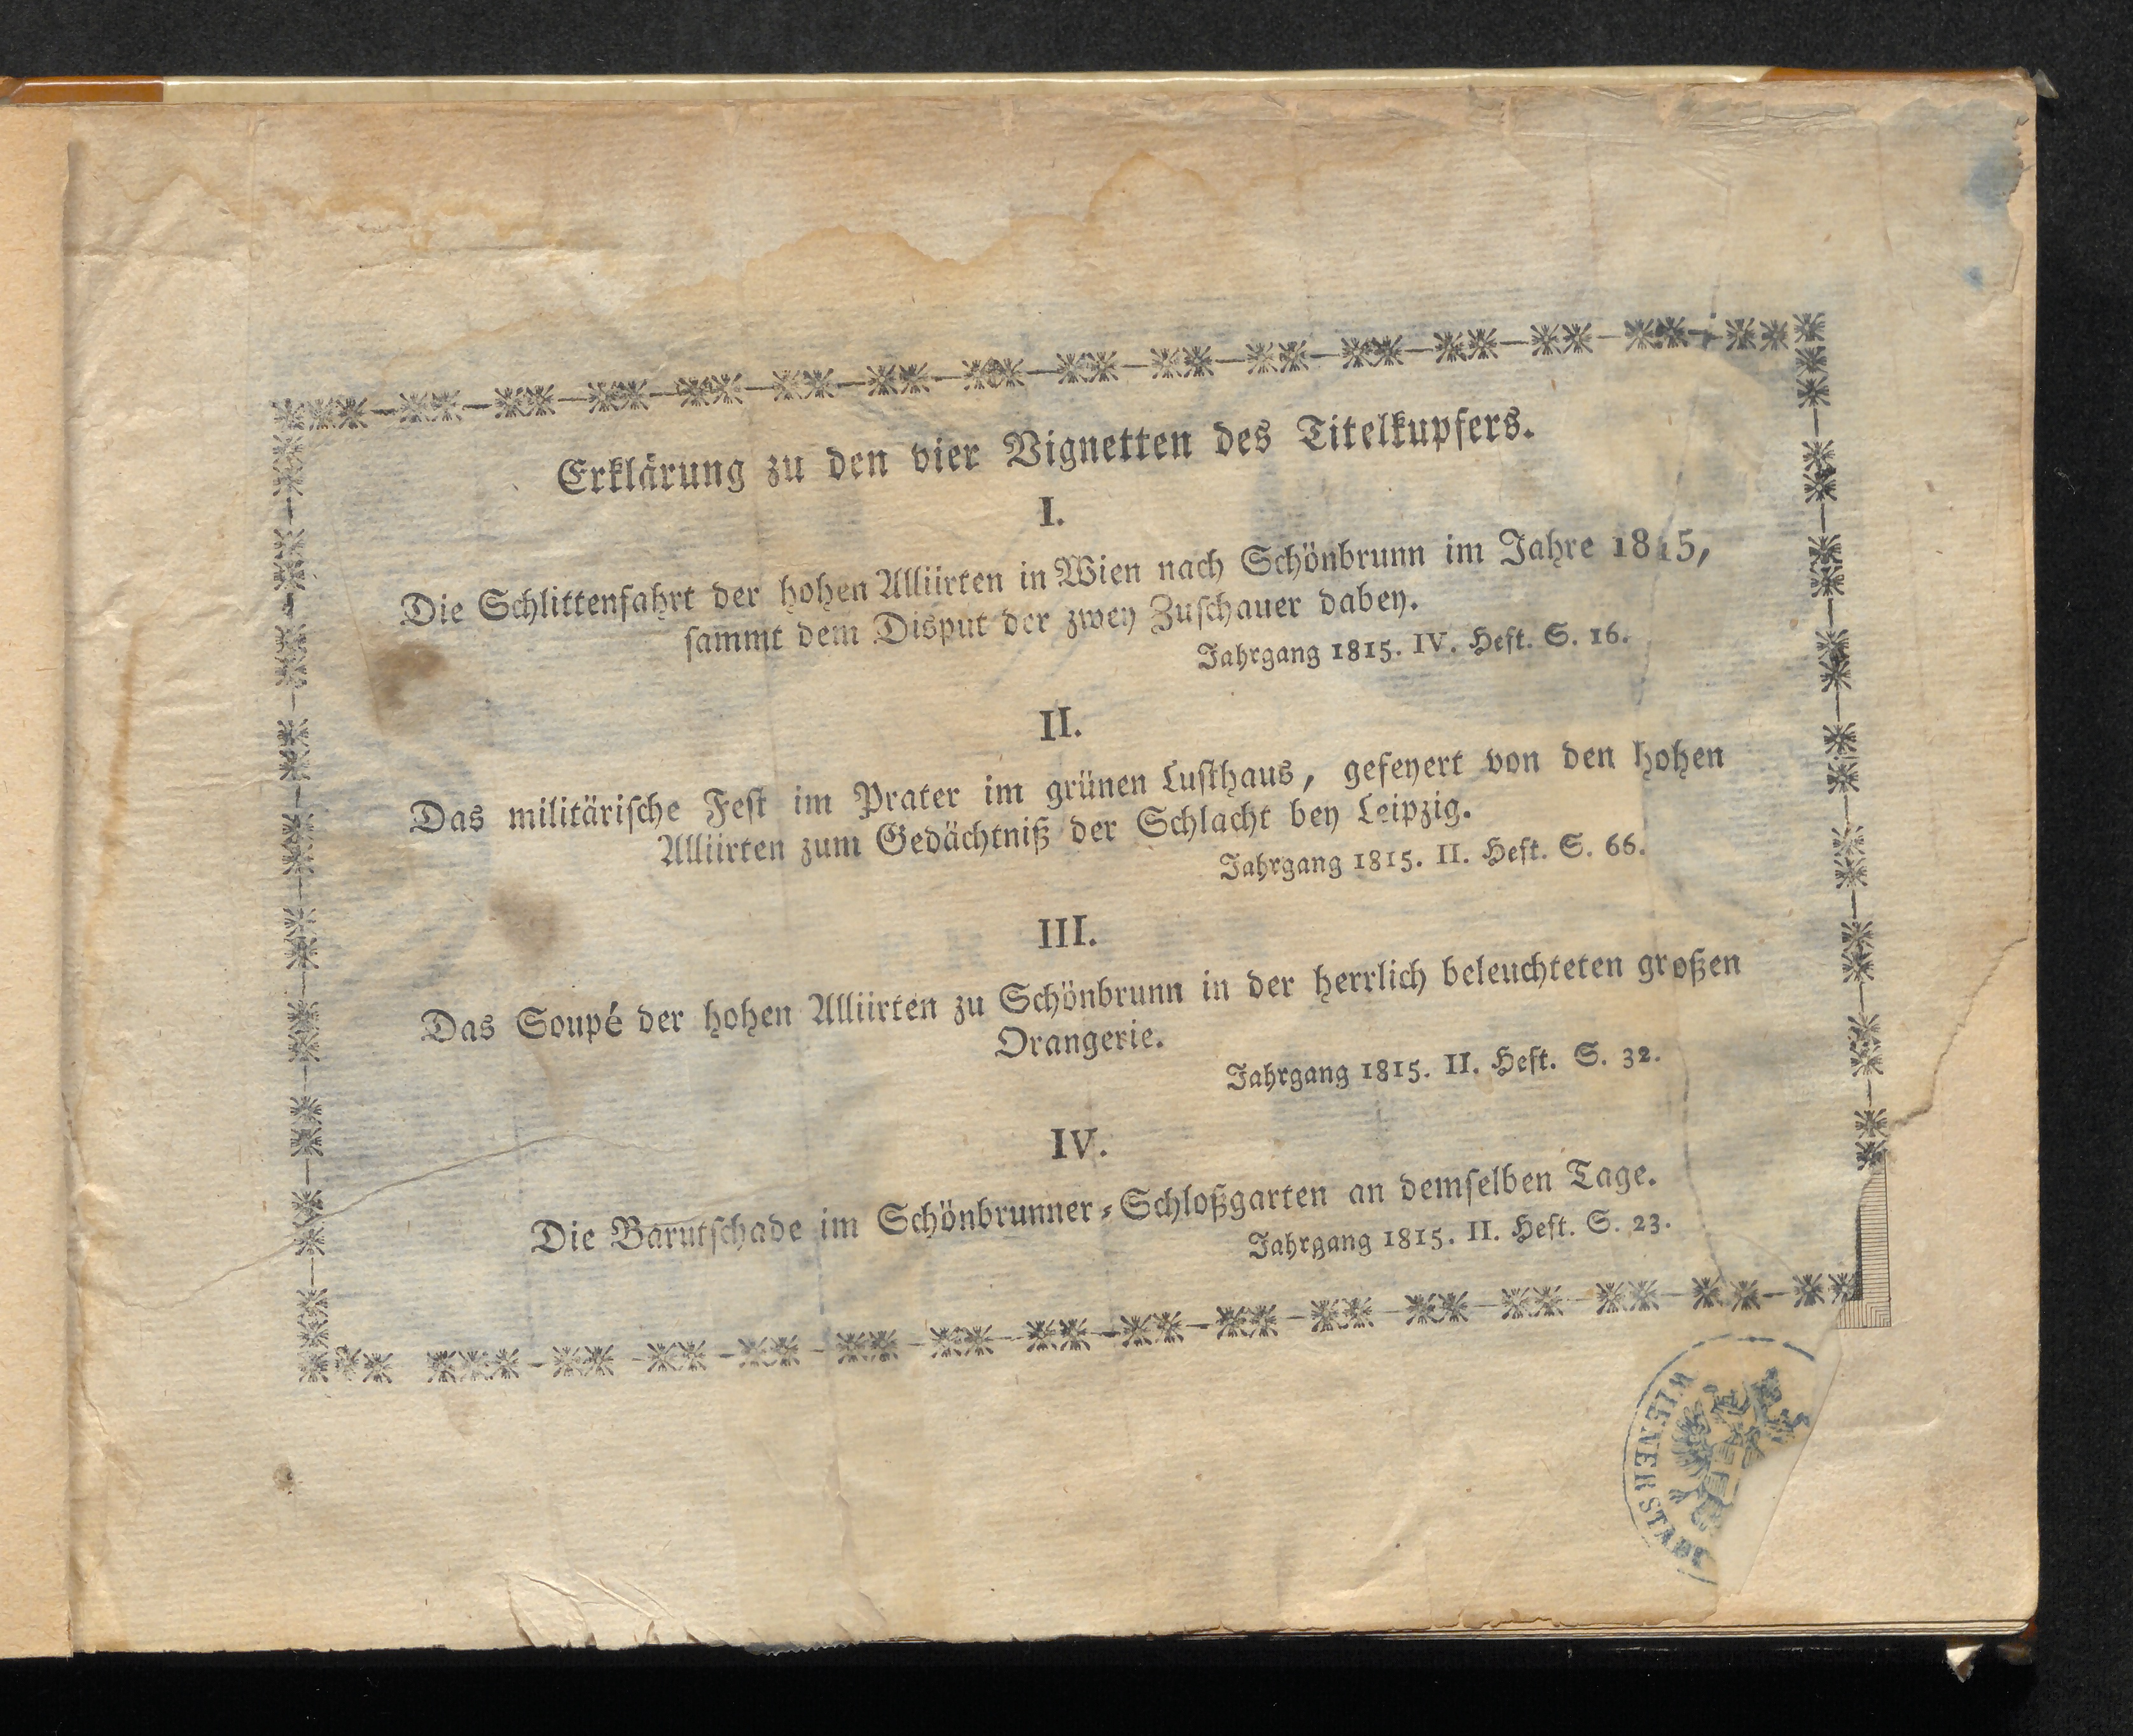 Erklärung zu den vier Vignetten des Titelkupfers.
I.
Die Schlittenfahrt der hohen Alliirten in Wien nach Schönbrunn im Jahre 1815,
ſammt dem Disput der zwey Zuſchauer dabey.
Jahrgang 1815. IV. Heft. S. 16.
II.
Das militäriſche Feſt im Prater im grünen Luſthaus, gefeyert von den hohen
Alliirten zum Gedächtniß der Schlacht bey Leipzig.
Jahrgang 1815. II. Heft. S. 66.
III.
Das Soupé der hohen Alliirten zu Schönbrunn in der herrlich beleuchteten großen
Orangerie.
Jahrgang 1815. II. Heft. S. 32.
IV.
Die Barutſchade im Schönbrunner-Schloßgarten an demſelben Tage.
Jahrgang 1815. II. Heft. S. 23.
WIENER